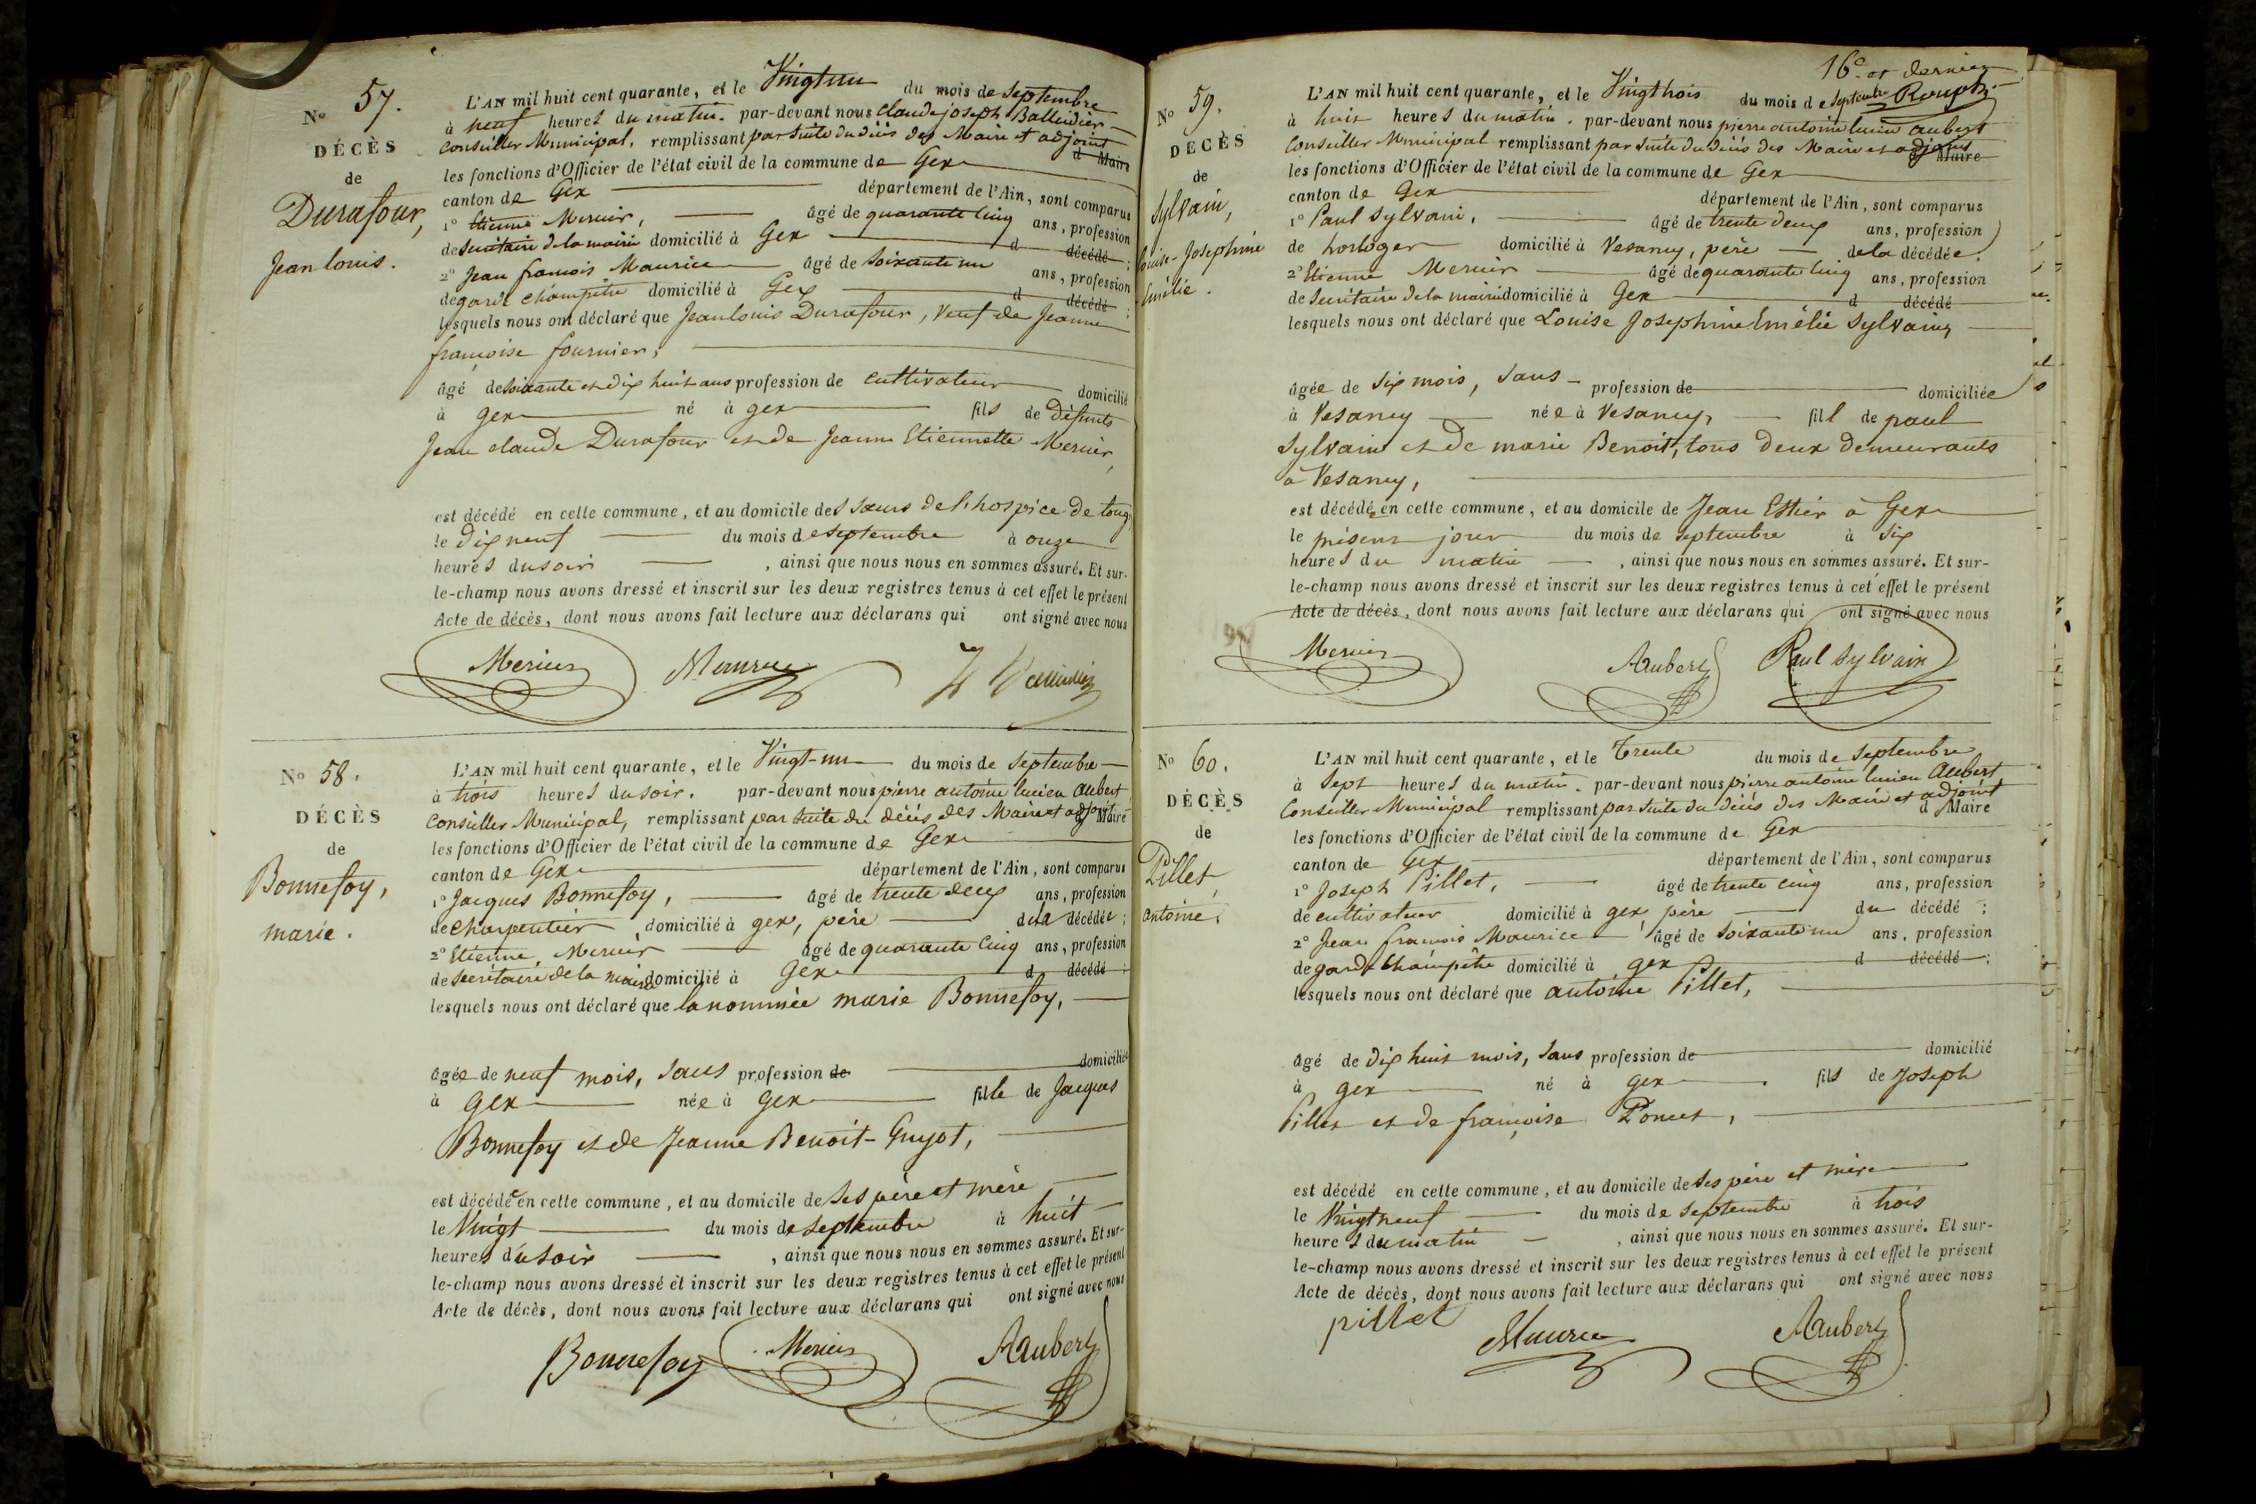 No 57.
DÉCÈS
de
Durafour,
Jean louis.
L'AN mil huit cent quarante, et le Vingt un du mois de septembre
à neuf heures du matin. par-devant nous claude joseph Balleidier
Conseiller Municipal, remplissant par suite du décès des Maire et adjoint
d Maire
les fonctions d'Officier de l'état civil de la commune de Gex
canton de Gex département de l'Ain, sont comparus
1o Etienne Mercier, âgé de quarante cinq ans, profession
de secrétaire de la mairie domicilié à Gex d décédé ;
2o Jean françois Maurice âgé de soixante un ans, profession
de garde champêtre domicilié à Gex d décédé ;
lesquels nous ont déclaré que Jean louis Durafour, veuf de Jeanne
françoise fournier,
âgé de soixante et dix huit ans profession de cultivateur domicilié
à gex né à gex fils de défunts
Jean claude Durafour et de Jeanne Etiennette Mercier,
est décédé en cette commune, et au domicile des sœurs de l'hospice de tougin
le dix neuf du mois de septembre à onze
heures du soir , ainsi que nous nous en sommes assuré. Et sur-
le-champ nous avons dressé et inscrit sur les deux registres tenus à cet effet le présent
Acte de décès, dont nous avons fait lecture aux déclarans qui ont signé avec nous
Mercier Maurice Balleidier
No 58.
DÉCÈS
de
Bonnefoy,
marie.
L'AN mil huit cent quarante, et le Vingt-un du mois de septembre
à trois heures du soir. par-devant nous pierre antoine lucien Aubert
Conseiller Municipal, remplissant par suite du décès des Maire et adjoint
d Maire
les fonctions d'Officier de l'état civil de la commune de Gex
canton de Gex département de l'Ain, sont comparus
1o Jacques Bonnefoy, âgé de trente deux ans, profession
de charpentier domicilié à gex, père de la décédée ;
2o Etienne Mercier âgé de quarante cinq ans, profession
de secrétaire de la mairie domicilié à Gex d décédé ;
lesquels nous ont déclaré que la nommée marie Bonnefoy,
âgée de neuf mois, sans profession de domiciliée
à Gex née à Gex fille de Jacques
Bonnefoy et de Jeanne Benoit-Guyot,
est décédée en cette commune, et au domicile de ses père et mère
le Vingt du mois de septembre à huit
heures du soir , ainsi que nous nous en sommes assuré. Et sur-
le-champ nous avons dressé et inscrit sur les deux registres tenus à cet effet le présent
Acte de décès, dont nous avons fait lecture aux déclarans qui ont signé avec nous
Bonnefoy Mercier Aubert
16e et dernier
Rouph
No 59.
DÉCÈS
de
Sylvain,
Louise-Josephine
Emélie.
L'AN mil huit cent quarante, et le Vingt trois du mois de septembre
à huit heures du matin. par-devant nous pierre antoine lucien Aubert
Conseiller Municipal remplissant par suite du décès des Maire et adjoint
d Maire
les fonctions d'Officier de l'état civil de la commune de Gex
canton de Gex département de l'Ain, sont comparus
1o Paul Sylvain, âgé de trente deux ans, profession
de horloger domicilié à Vesancy, père de la décédée ;
2o Etienne Mercier âgé de quarante cinq ans, profession
de secrétaire de la mairie domicilié à Gex d décédé
lesquels nous ont déclaré que Louise Josephine Emélie Sylvain,
âgée de six mois, sans profession de domiciliée
à Vesancy née à Vesancy, fill de paul
Sylvain et de marie Benoit, tous deux demeurants
à Vesancy,
est décédée en cette commune, et au domicile de Jean Estier à Gex
le présent jour du mois de septembre à six
heures du matin , ainsi que nous nous en sommes assuré. Et sur-
le-champ nous avons dressé et inscrit sur les deux registres tenus à cet effet le présent
Acte de décès, dont nous avons fait lecture aux déclarans qui ont signé avec nous
Mercier Aubert Paul Sylvain
No 60.
DÉCÈS
de
Pillet,
antoine,
L'AN mil huit cent quarante, et le Trente du mois de septembre
à sept heures du matin. par-devant nous pierre antoine lucien Aubert,
Conseiller Municipal remplissant par suite du décès des Maire et adjoint
d Maire
les fonctions d'Officier de l'état civil de la commune de Gex
canton de Gex département de l'Ain, sont comparus
1o Joseph Pillet, âgé de trente cinq ans, profession
de cultivateur domicilié à gex, père du décédé ;
2o Jean françois Maurice âgé de soixante un ans, profession
de garde champêtre domicilié à gex d décédé ;
lesquels nous ont déclaré que antoine Pillet,
âgé de dix huit mois, sans profession de domicilié
à gex né à Gex fils de Joseph
Pillet et de françoise Poncet,
est décédé en cette commune, et au domicile de ses père et mère
le Vingt neuf du mois de septembre à trois
heures du matin , ainsi que nous nous en sommes assuré. Et sur-
le-champ nous avons dressé et inscrit sur les deux registres tenus à cet effet le présent
Acte de décès, dont nous avons fait lecture aux déclarans qui ont signé avec nous
pillet Maurice Aubert